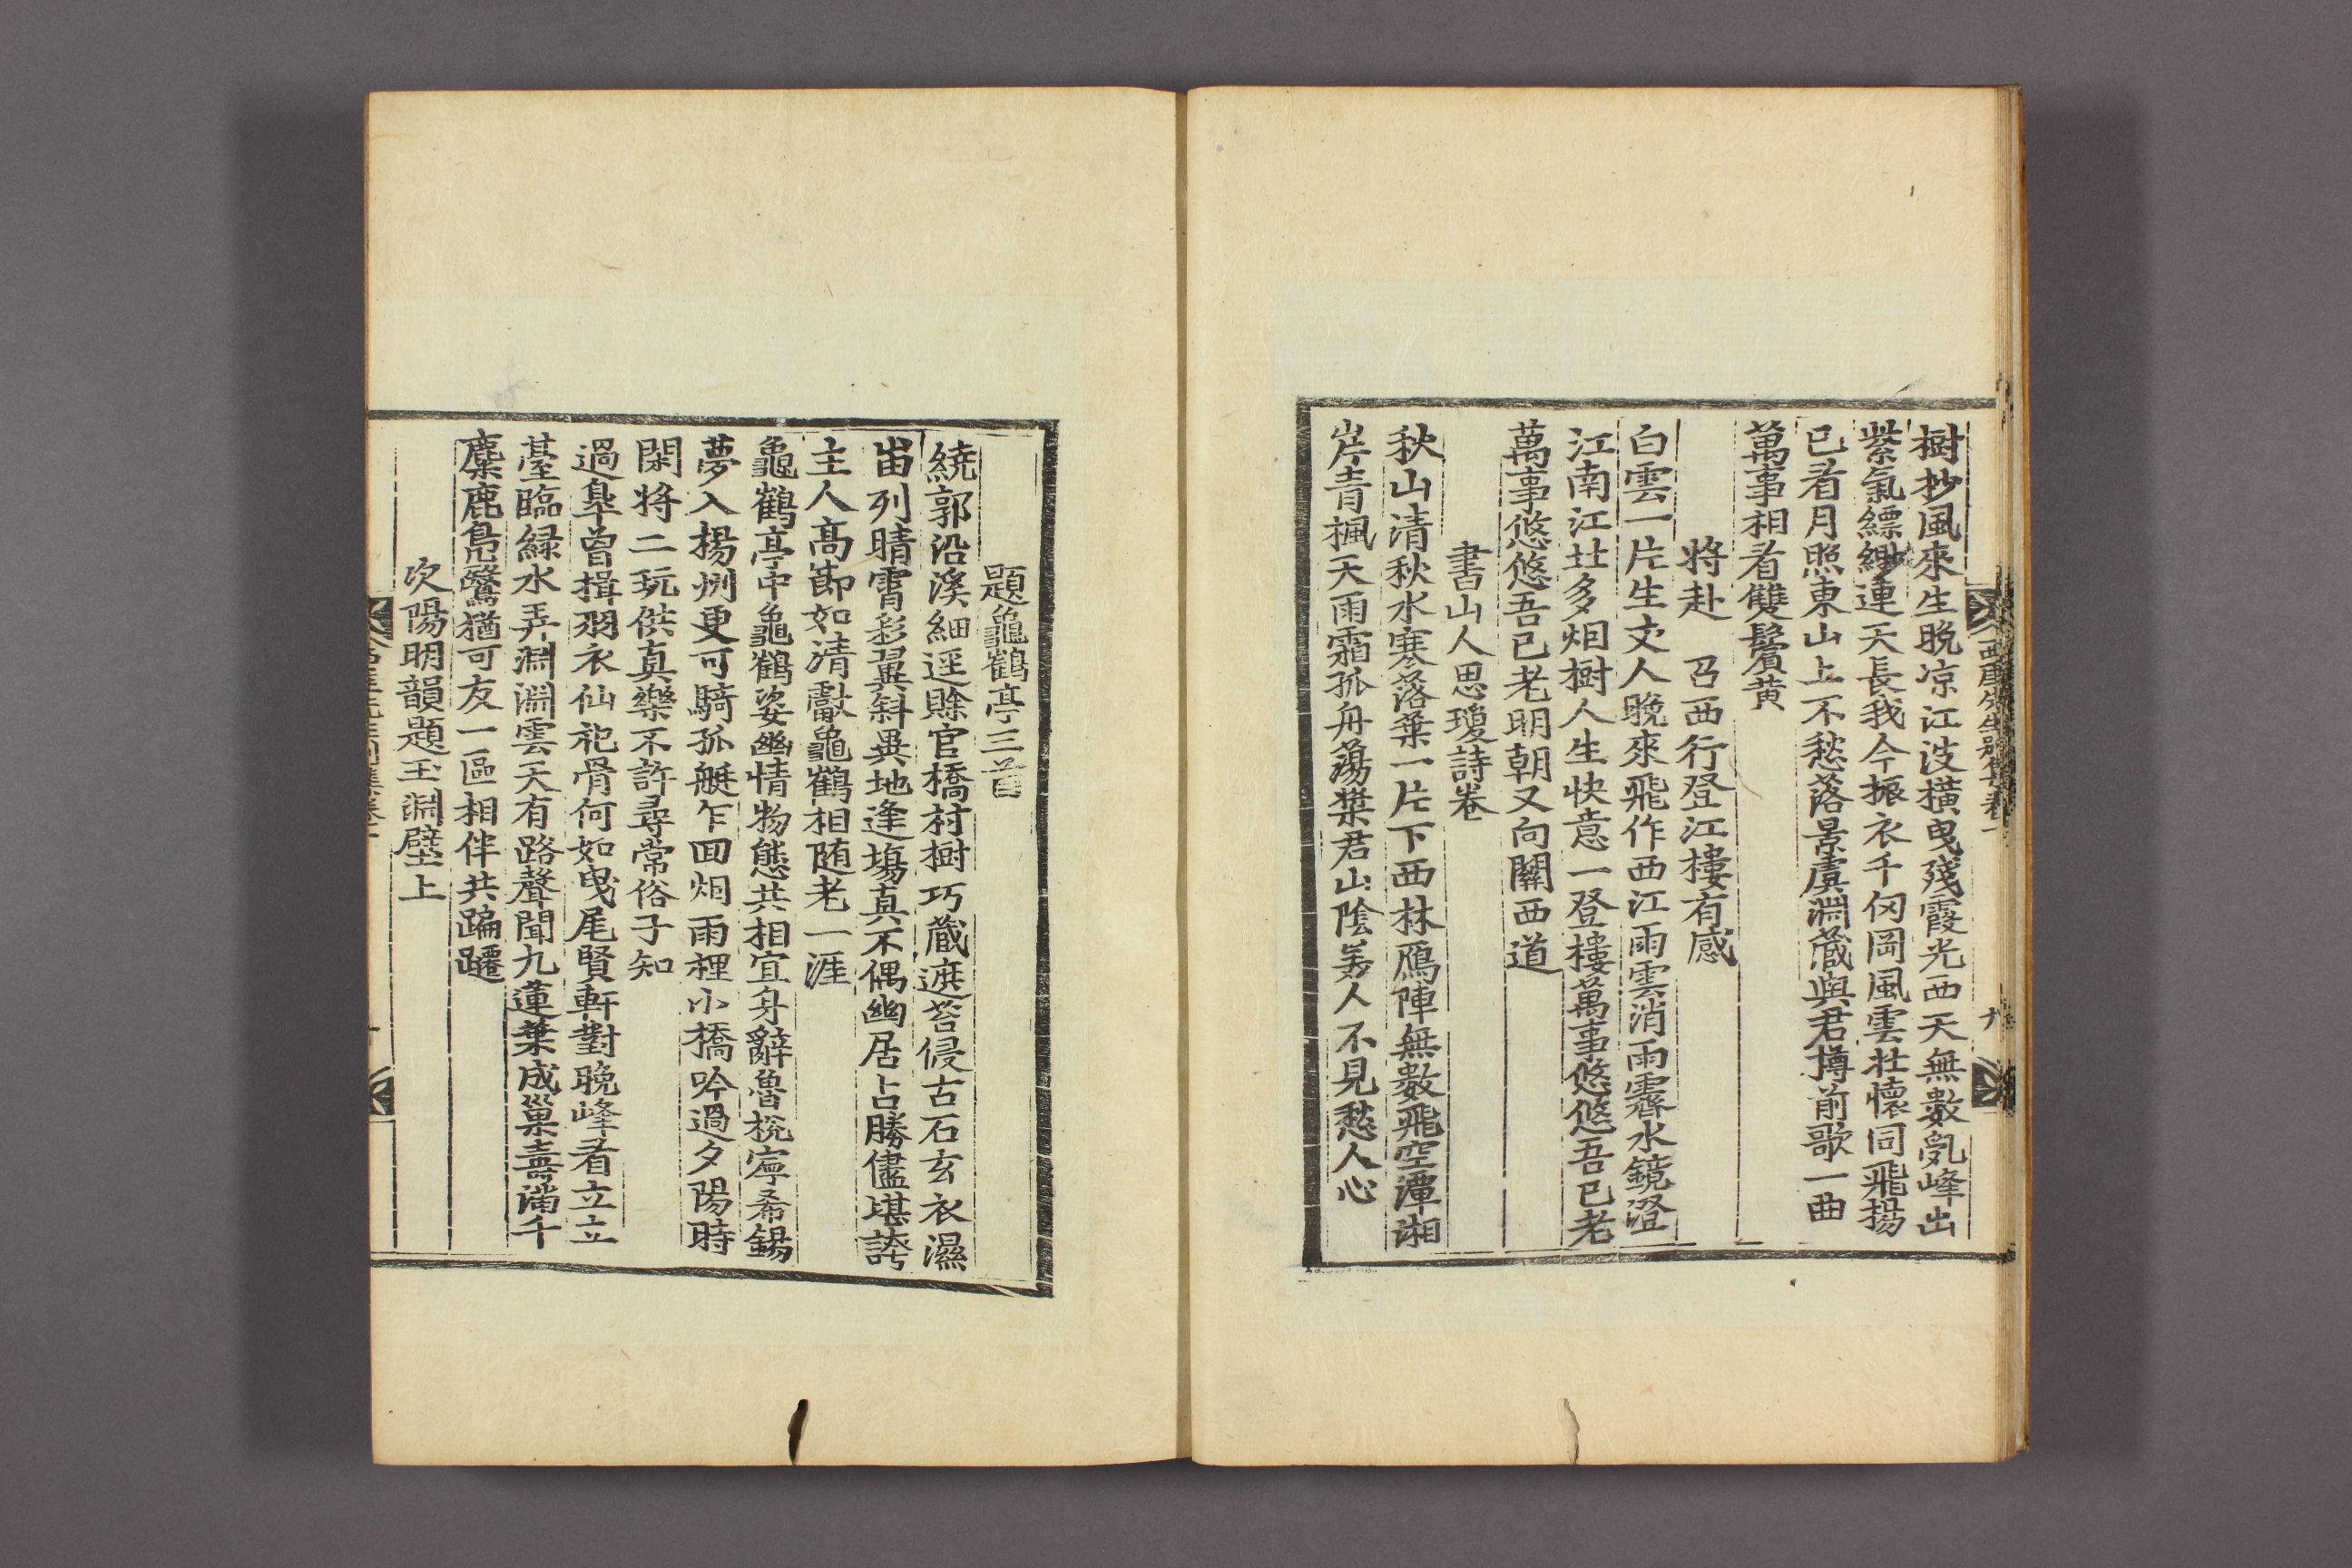 西厓先生別集卷一
九
樹抄風來生晩凉江波橫曳殘霞光西天無數亂峰出
紫氣縹緲連天長我今振衣千仞岡風雲壯懷同飛揚
已看月照東山上不愁落景虞淵藏與君樽前歌一曲
萬事相看雙鬢黄
將赴 召西行登江樓有感
白雲一片生文人晩來飛作西江雨雲消雨霽水鏡澄
江南江北多烟樹人生快意一登樓萬事悠悠吾已老
萬事悠悠吾已老明朝又向關西道
書山人思瓊詩卷
秋山清秋水寒落葉一片下西林鴈陣無數飛空潭湘
岸青楓天雨霜孤舟蕩槳君山陰美人不見愁人心
題龜鶴亭三首
繞郭沿溪細逕賖官橋村樹巧藏遮苔侵古石玄衣濕
峀列晴霄彩翼斜異地逢塲真不偶幽居占勝儘堪誇
主人高節如清獻龜鶴相随老一涯
龜鶴亭中龜鶴姿幽情物態共相宜身辭魯梲寧希錫
夢入揚州更可騎孤艇乍回烟雨裡小橋吟過夕陽時
閑將二玩供真樂不許尋常俗子知
過皐曾揖羽衣仙祀骨何如曳尾賢軒對晩峰看立立
臺臨緑水弄淵淵雲天有路聲聞九蓮葉成巢壽滿千
麋鹿鳧鷖猶可友一區相伴共蹁躚
次陽明韻題玉淵壁上